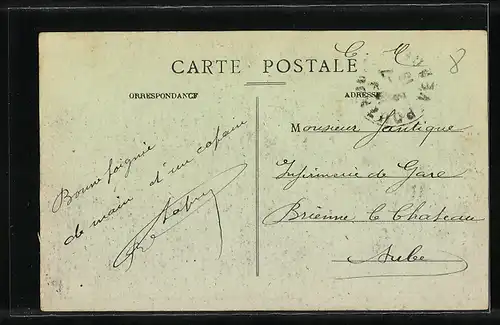 C. M. 8
CARTE POSTALE
ORRESPONDANCE
ADRESSE
Monsieur Jantique
Infirmerie de Gare
Brienne le Chateau
Aube
Bonne poignée
de main d'un copain